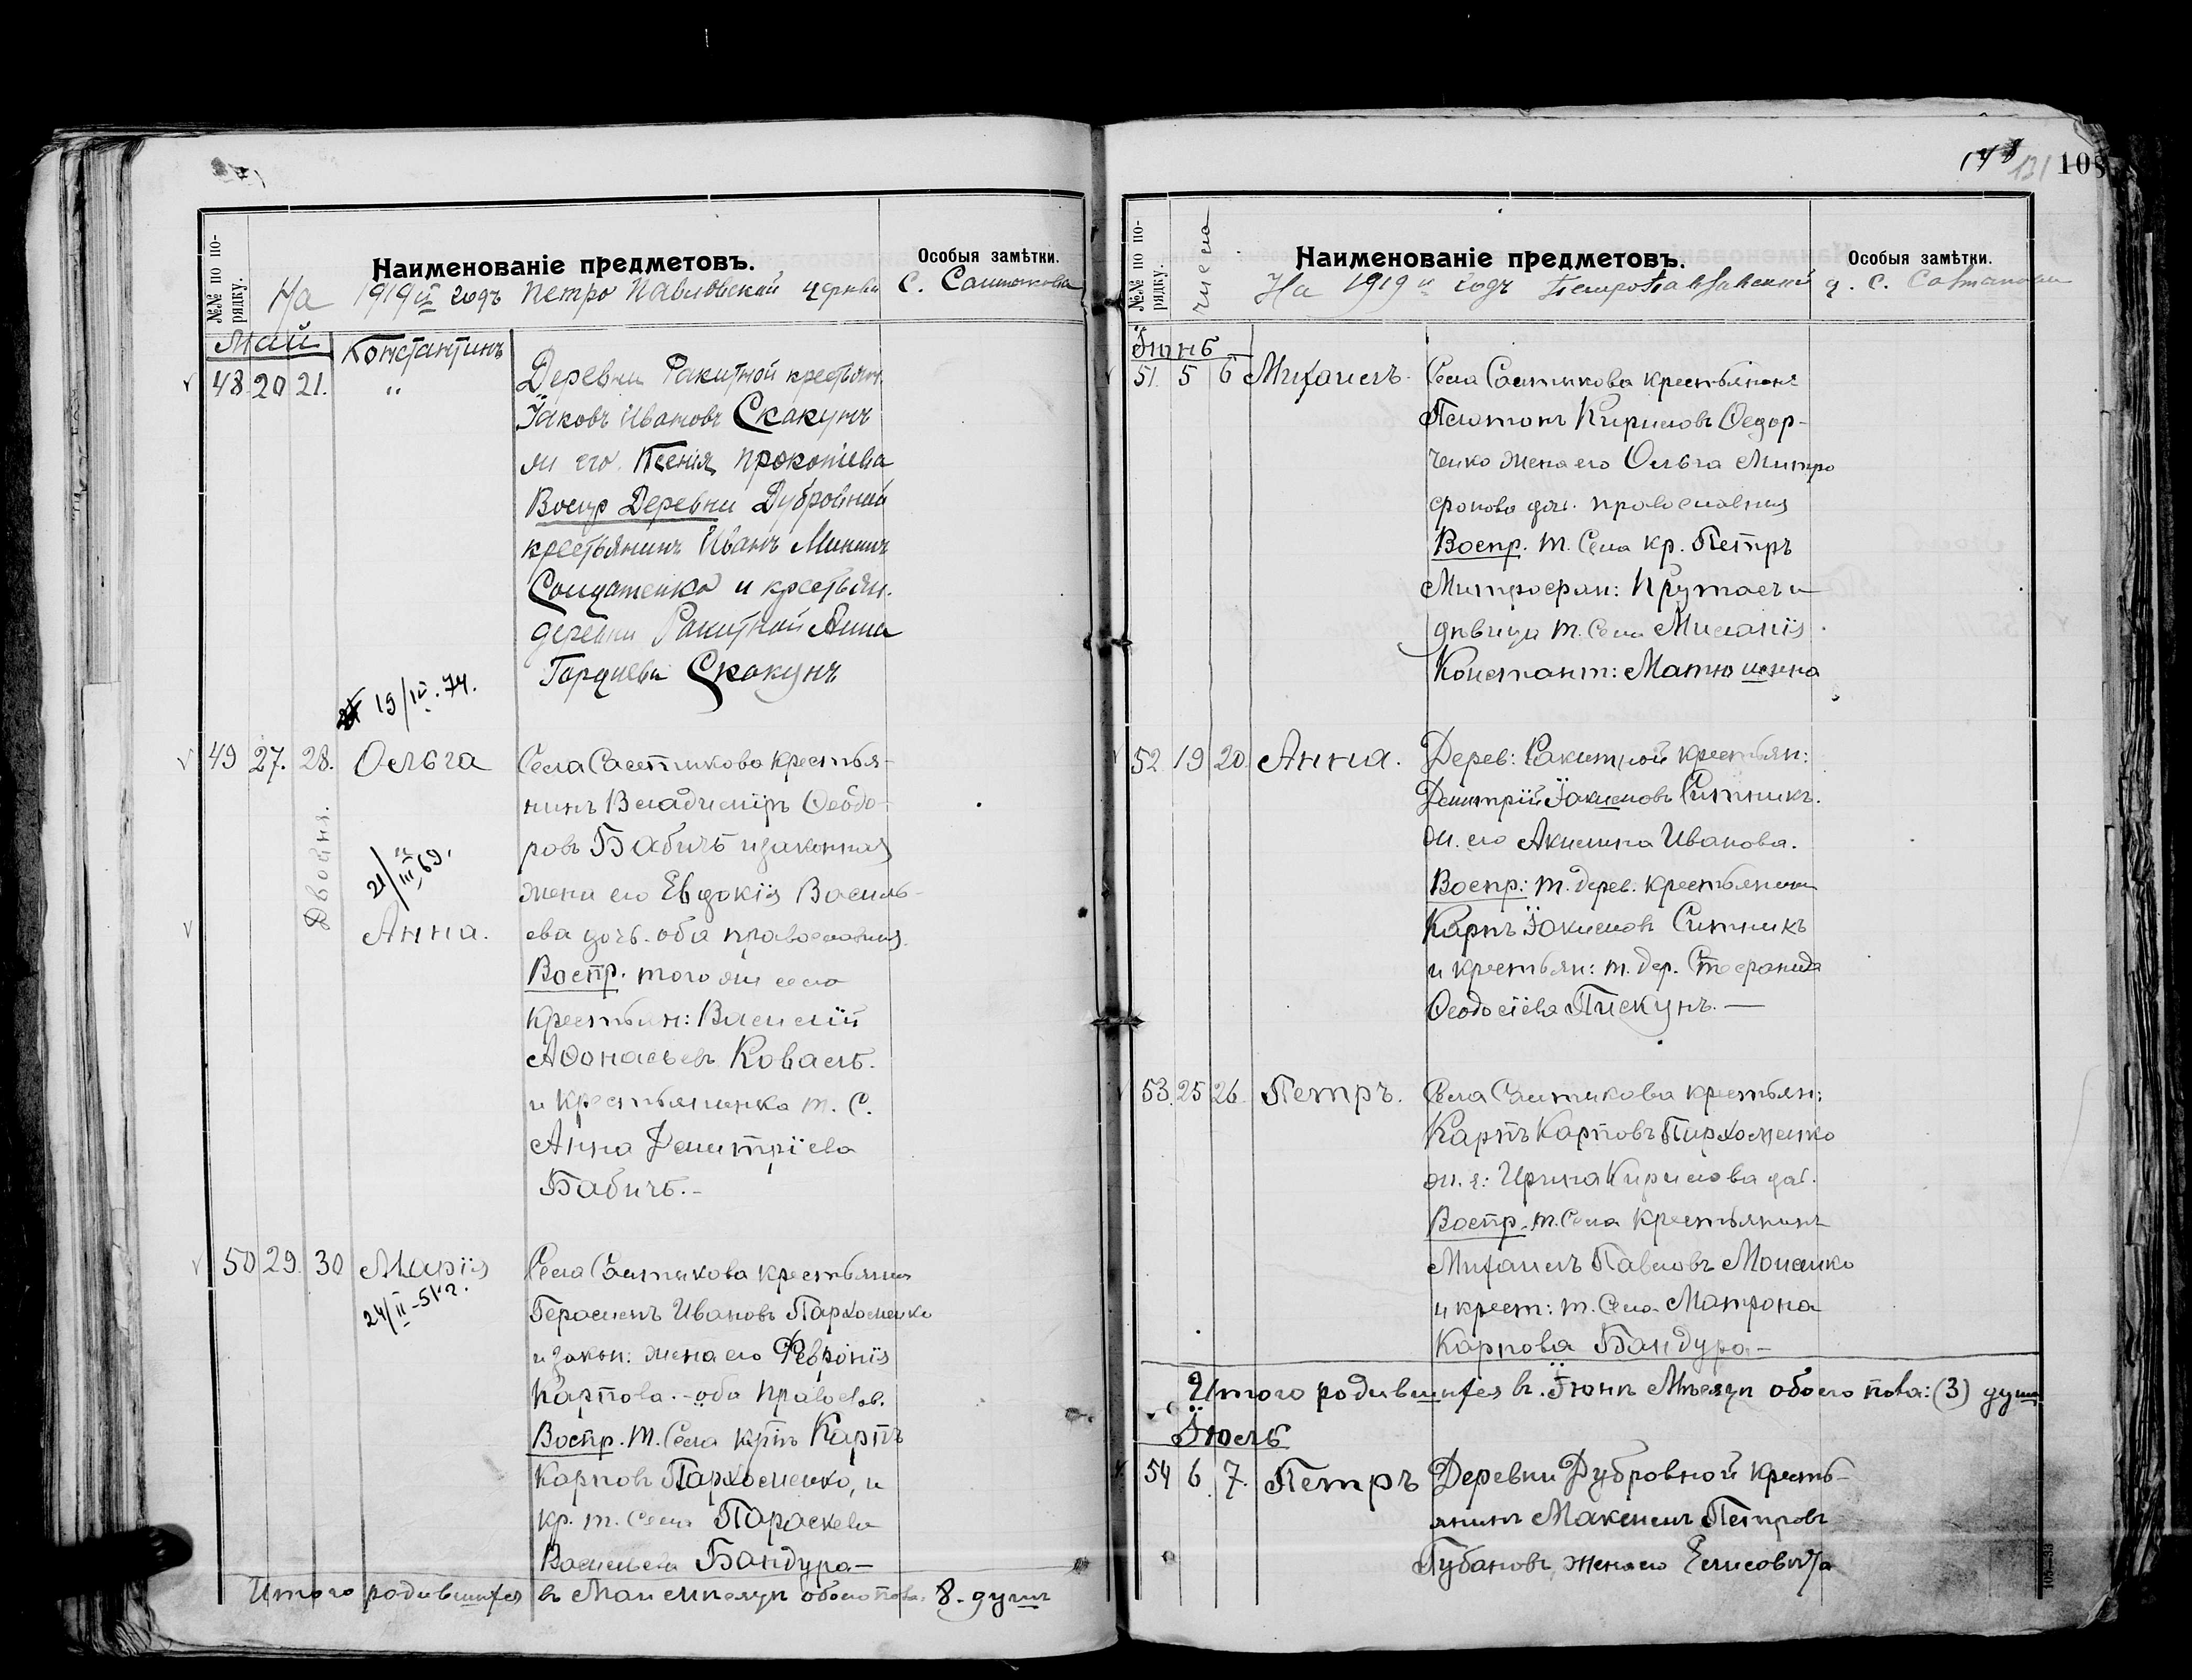 №№ по по-
рядку.
Наименованіе предметовъ.
Особыя замѣтки.
На 1919й годъ Петро Павловской церкви с. Салтыкова
Май
48. 20 21. Константинъ
Деревни Ракитной крестьян.
Іаковъ Ивановъ Скакунъ
ж его. Ксенія Прокопіева
Воспр Деревни Дубровной
крестьянинъ Иванъ Мининъ
Солдатенко и крестьян.
деревни Ракитной Анна
Гордиева Скакунъ
19/IV. 74.
49 27. 28. Ольга
Села Салтыкова крестья-
нинъ Владиміръ Ѳеодо-
ровъ Бабичъ и законная
жена его Евдокія Василь-
ева дочь. оба православныя.
Двойня.
21/III 69.
Анна.
Воспр. того же села
крестьян: Василій
Аѳонасьевъ Коваль.
и крестьянинка т. с.
Анна Димитріева
Бабичъ.-
50 29. 30 Марія
24/II-51г.
Села Салтыкова крестьянин
Герасимъ Ивановъ Пархоменко
и закон: жена его Февронія
Карпова.-оба православ.
Воспр. т. Села крн Карпъ
Карповъ Пархоменко, и
кр. т. села Параскева
Васильева Бандура-
Итого родившихся въ Маи мѣсяцѣ обоего пола. 8. душъ
131 108
№№ по по-
рядку.
числа
Наименованіе предметовъ.
Особыя замѣтки.
На 1919й годъ Петропавловской ц. с. Салтыкова
Іюнь
51. 5 6 Михаилъ.
Села Салтыкова крестьянинъ
Платонъ Кириловъ Ѳедор-
ченко жена его Ольга Митро
фанова дм. православныя
Воспр. т. Села кр. Петръ
Митрофан: Крутась и
дѣвица т. Села Миланія
Констант: Матюшкина
52. 19 20. Анна.
Дерев: Ракитной крестьян:
Димитрій Іакимовъ Ситникъ.
ж. его Акилина Иванова.
Воспр: т. дерев. крестьянинъ
Карпъ Іакимовъ Ситникъ
и крестьян: т. дер. Стефанида
Ѳеодосіева Пискунъ.—
53. 25 26. Петръ.
Села Салтыкова крестьян:
Карпъ Карповъ Пархоменко
ж. е: Ирина Кирилова
Воспр. т. Села крестьянинъ
Михаилъ Павловъ
и крест: т. Села Матрона
Карпова Бандура-
Итого родившихся въ Іюнѣ Мѣсяцѣ обоего пола: (3) душ
Іюль
54 6. 7. Петръ
Деревни Дубровной кресть-
янинъ Максимъ Петровъ
Губановъ, жена его Елисавета